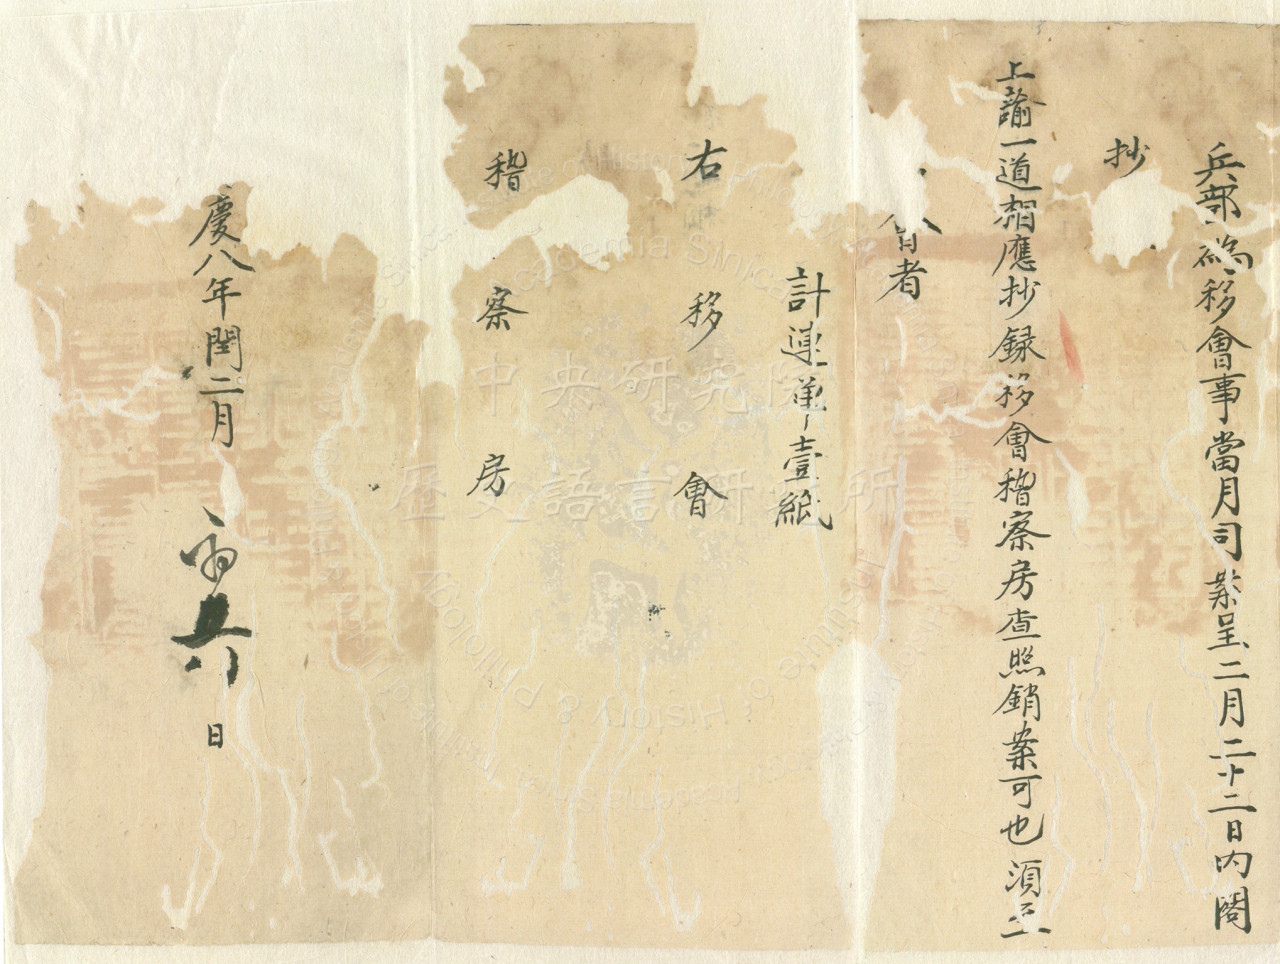 兵部為移會事當月司案呈二月二十二日內閣
抄
上諭一道相應抄録移會稽察房查照銷案可也須至
會者
計連单壹紙
右移會
稽察房
慶八年閏二月 日
中央研究院
歷史語言研究所
Institute of History & Philology Academia Sinica